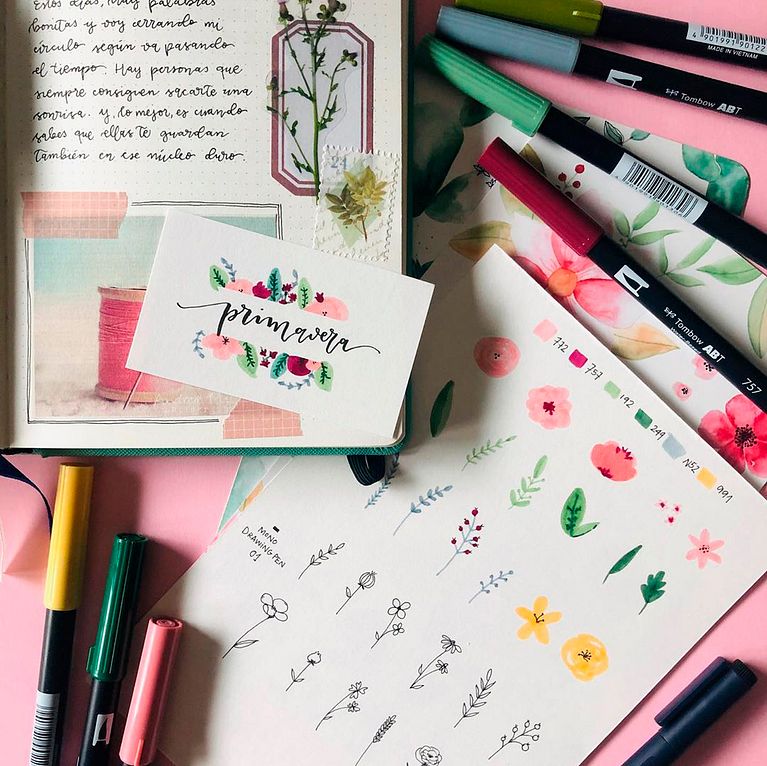 Estos días, muy palabras
bonitas y voy cerrando mi
círculo según va pasando
el tiempo. Hay personas que
siempre consiguen sacarte una
sonrisa. y, lo mejor, es cuando
sabes que ellas te guardan
también en ese núcleo duro.
21
primavera
772
757
192
249
N52
991
MONO
DRAWING PEN
01
4901991 90122
MADE IN VIETNAM
Tombow ABT
Tombow ABT
757